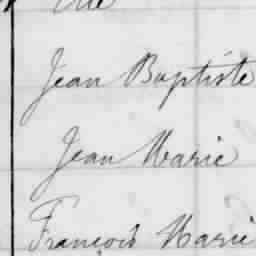 Jean Baptiste
Jean Marie
François Marie